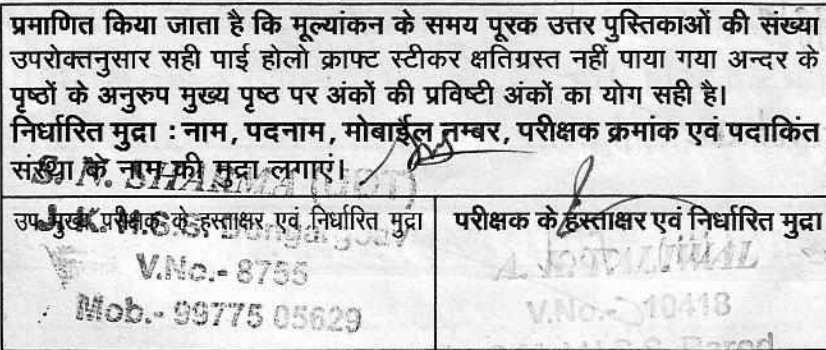 प्रमाणित किया जाता है कि मूल्यांकन के समय पूरक उत्तर पुस्तिकाओं की संख्या
उपरोक्तनुसार सही पाई होलो क्राफ्ट स्टीकर क्षतिग्रस्त नहीं पाया गया अन्दर के
पृष्ठों के अनुरुप मुख्य पृष्ठ पर अंकों की प्रविष्टी अंकों का योग सही है।
निर्धारित मुद्रा : नाम, पदनाम, मोबाईल नम्बर, परीक्षक क्रमांक एवं पदाकिंत
संस्था के नाम की मुद्रा लगाएं।
S. N. SHARMA
उप मुख्य परीक्षक के हस्ताक्षर एवं निर्धारित मुद्रा
V.No.- 8755
Mob.- 99775 05629
परीक्षक के हस्ताक्षर एवं निर्धारित मुद्रा
V.No.- 10418